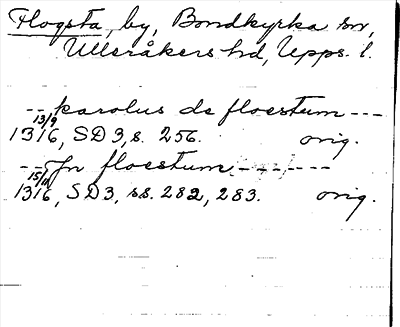 Flogsta, by, Bondkyrka sn,
Ulleråkers hd, Upps. l.
-- karolus de floestum ---
13/9
1316, SD 3, s. 256. orig.
-- Jn floestum -------
1316, SD 3, ss. 282, 283. orig.